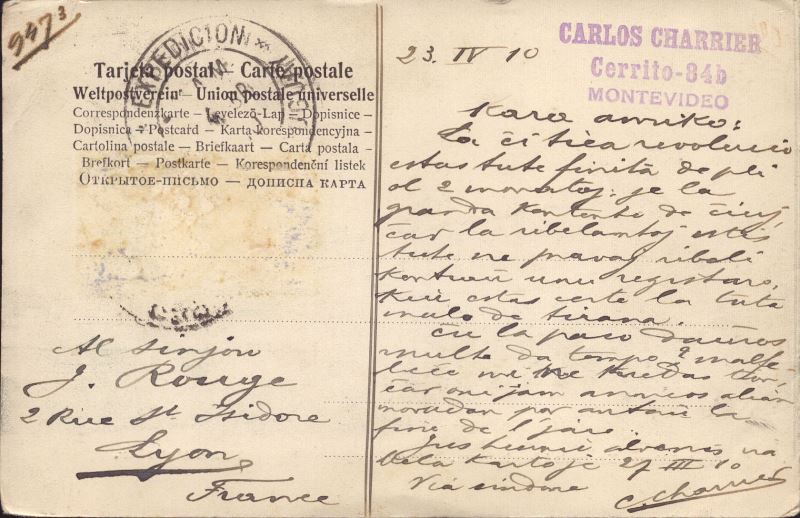 947 3
EXPEDICION
Tarjeta postal — Carte postale
Weltpostverein — Union postale universelle
Correspondenzkarte — Levelező-Lap — Dopisnice —
Dopisnica — Postcard — Karta korespondencyjna —
Cartolina postale — Briefkaart — Carta postala —
Brefkort — Postkarte — Korespondenční listek —
Открытое-письмо — дописна карта
Al sinjoro
J. Rouge
2 Rue St Isidore
Lyon
France
CARLOS CHARRIER
Cerrito-84b
MONTEVIDEO
23. IV 10
Kara amiko:
La ĉi tiea revolucio
estas tute finita de pli
ol 2 monatoj: je la
granda kontento de ĉiuj
ĉar la ribelantoj estis
tute ne pravaj ribeli
kontraŭ unu registaro,
kiu estas certe la tute
malo de tirana.
Ĉu la paco daŭros
multe da tempo? malfe
liĉe mi ne kredas tion,
ĉar oni jam anoncas alian
por antaŭ la
fino de l'jaro.
Jus venis
bela karto je 27 III 10
Via sindona
C. Charrier